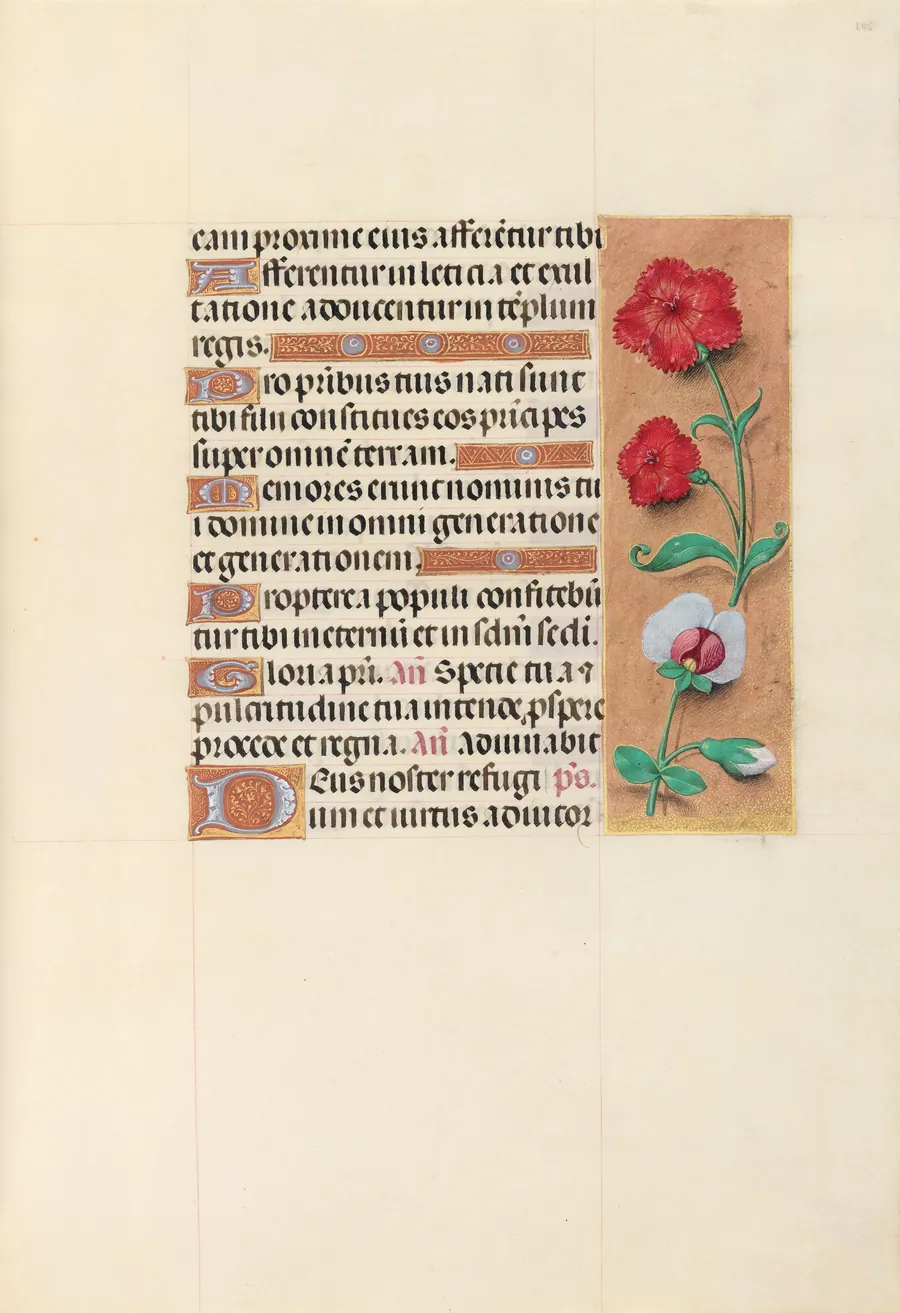 105
eam proxime eius afferẽtur tibi
Afferentur in leticia et exul
tatione adducentur in tẽplum
regis.
Pro pr̃ibus tuis nati sunt
tibi filii constitues eos prĩcipes
super omnẽ terram.
Memores erunt nominis tu
i domine in omni generatione
et generationem.
Propterea populi confitebũ
tur tibi in eternũ et in sc̃lm̃ sc̃li.
Gloria pr̃i. Añ Specie tua ⁊
pulcritudine tua intende, ꝓspere
procede et regna. Añ Adiuuabit
Deus noster refugi p̃s.
um et uirtus adiutor